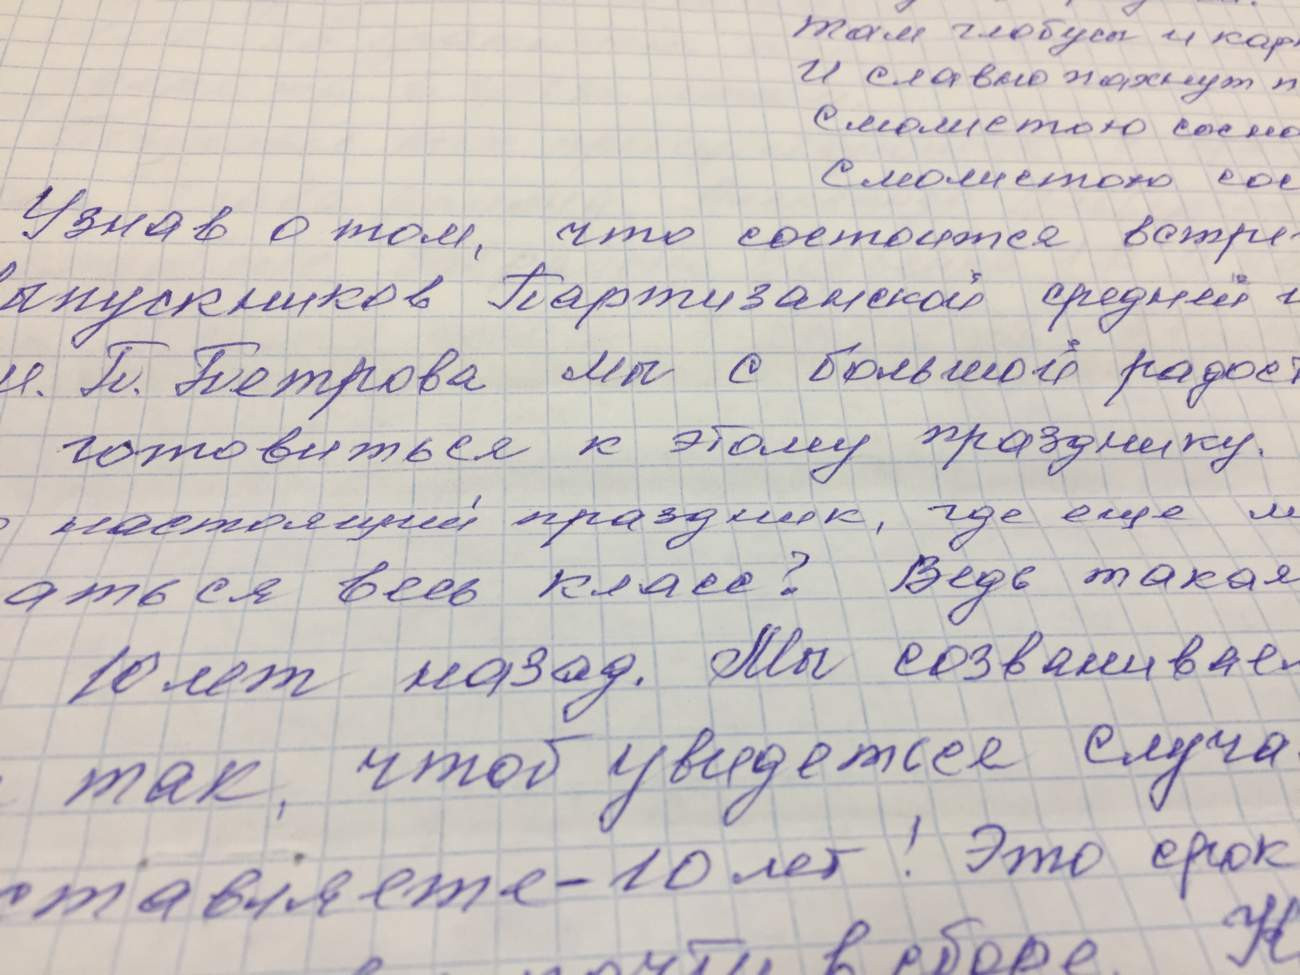 Там глобусы и кар
И славно пахнут п
Смолистою сосно
Смолистою сос
Узнав о том, что состоится встре
выпускников Партизанской средней
и. П. Петрова мы с большой радост
готовиться к этому празднику.
о настоящий праздник, где еще м
аться весь класс? Ведь такая
10 лет назад. Мы созванивает
так, чтоб увидеться случа
ставляете - 10 лет! Это срок
почти в сборе. Н